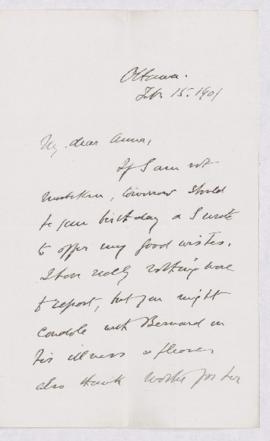 Ottawa.
Feb 15. 1901
My dear Anna,
If I am not
mistaken, tomorrow should
be your birthday & I write
to offer my good wishes.
I have really nothing more
to report, but you might
condole with Bernard in
his illness &
also thank for her